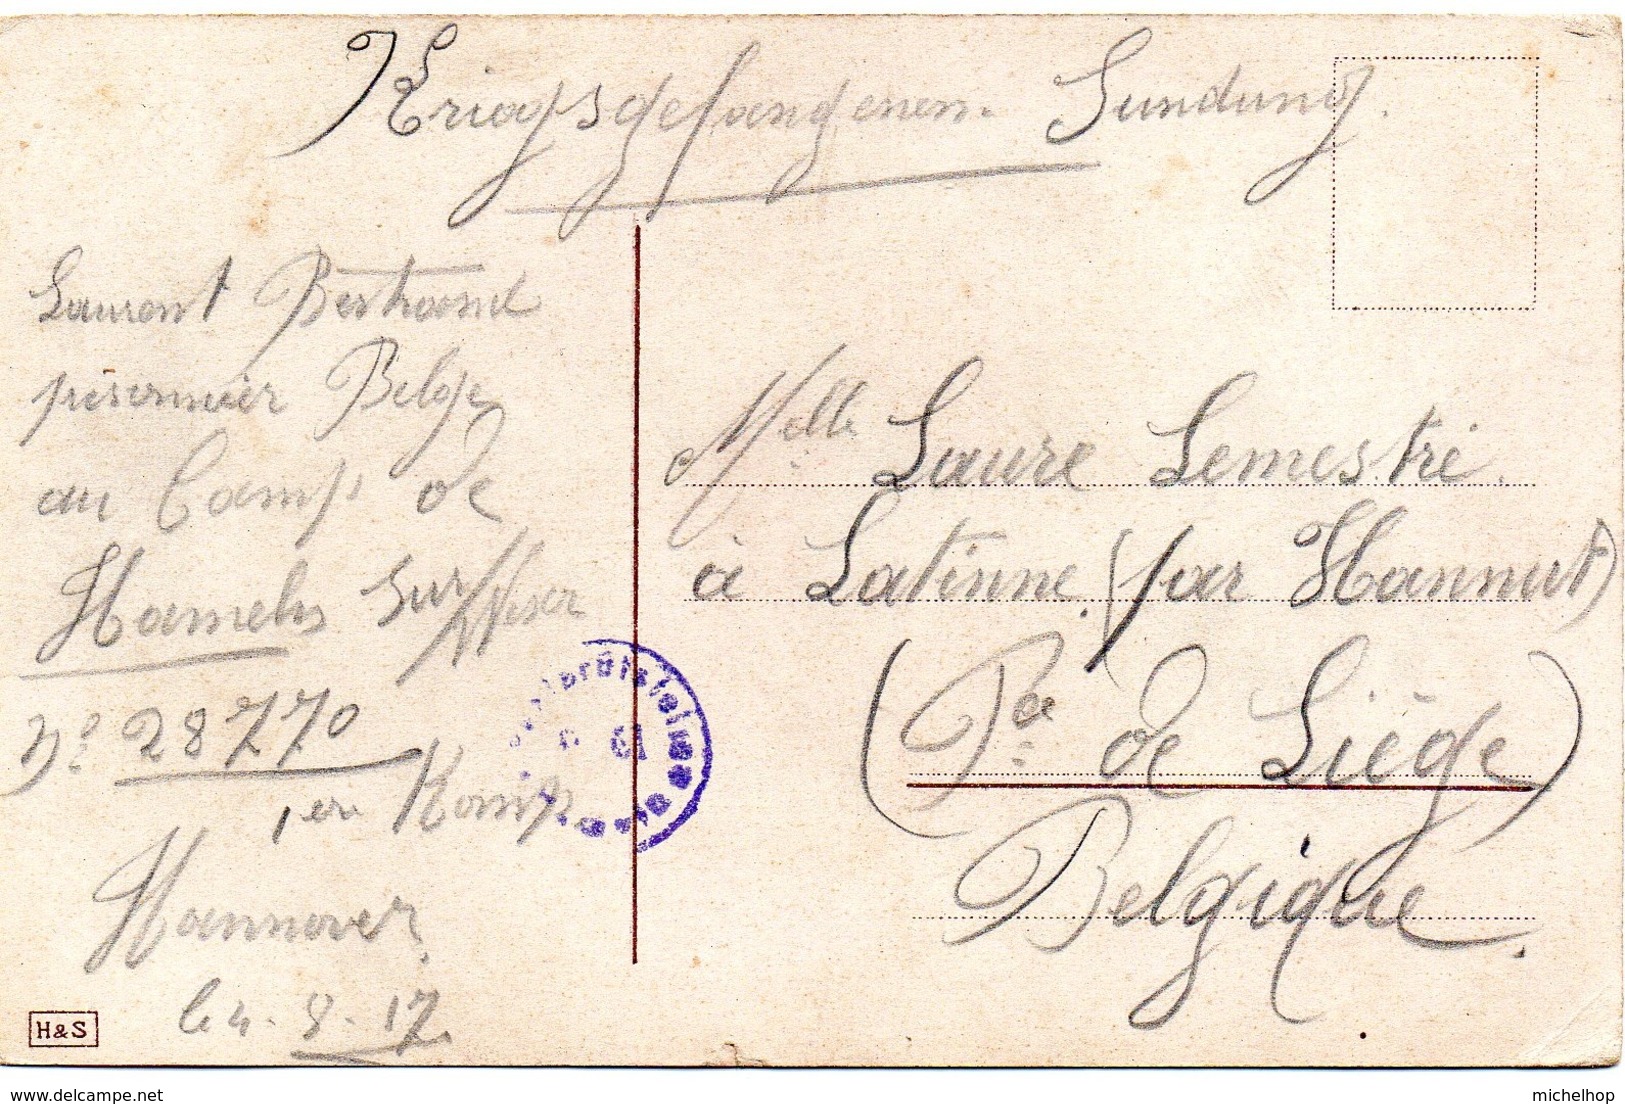 Kriegsgefangenen. Sundung.
Laurent Bertrand
prisonnier Belge
au Camp de
Hameln sur Weser
N° 28770
1ere Komp.
Hannover.
le 4-8-17
Melle Laure Lemestré.
à Latinne. (par Hannut)
(Pce de Liége)
Belgique.
H&S
delcampe.net
michelhop